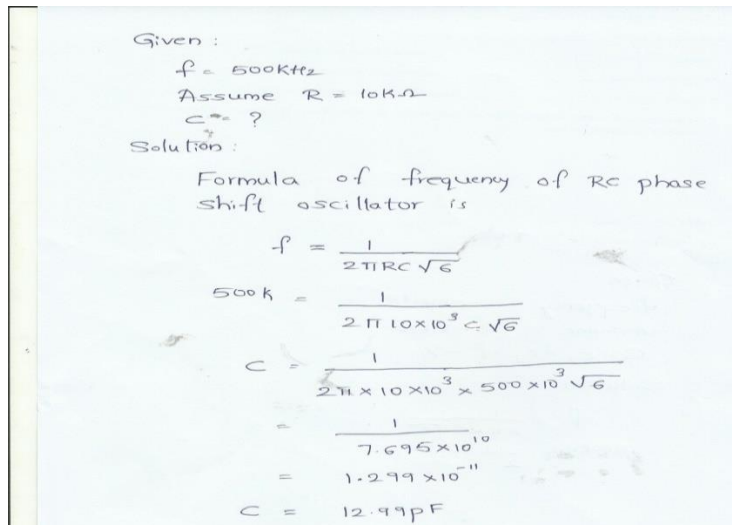 Given :
f = 500KHz
Assume R = 10KΩ
C = ?
Solution :
Formula of frequency of RC phase
shift oscillator is
f = 1 / 2πRC√6
500K = 1 / 2π 10×10³ C √6
C = 1 / 2π × 10 × 10³ × 500 × 10³ √6
= 1 / 7.695 × 10¹⁰
= 1.299 × 10⁻¹¹
C = 12.99pF